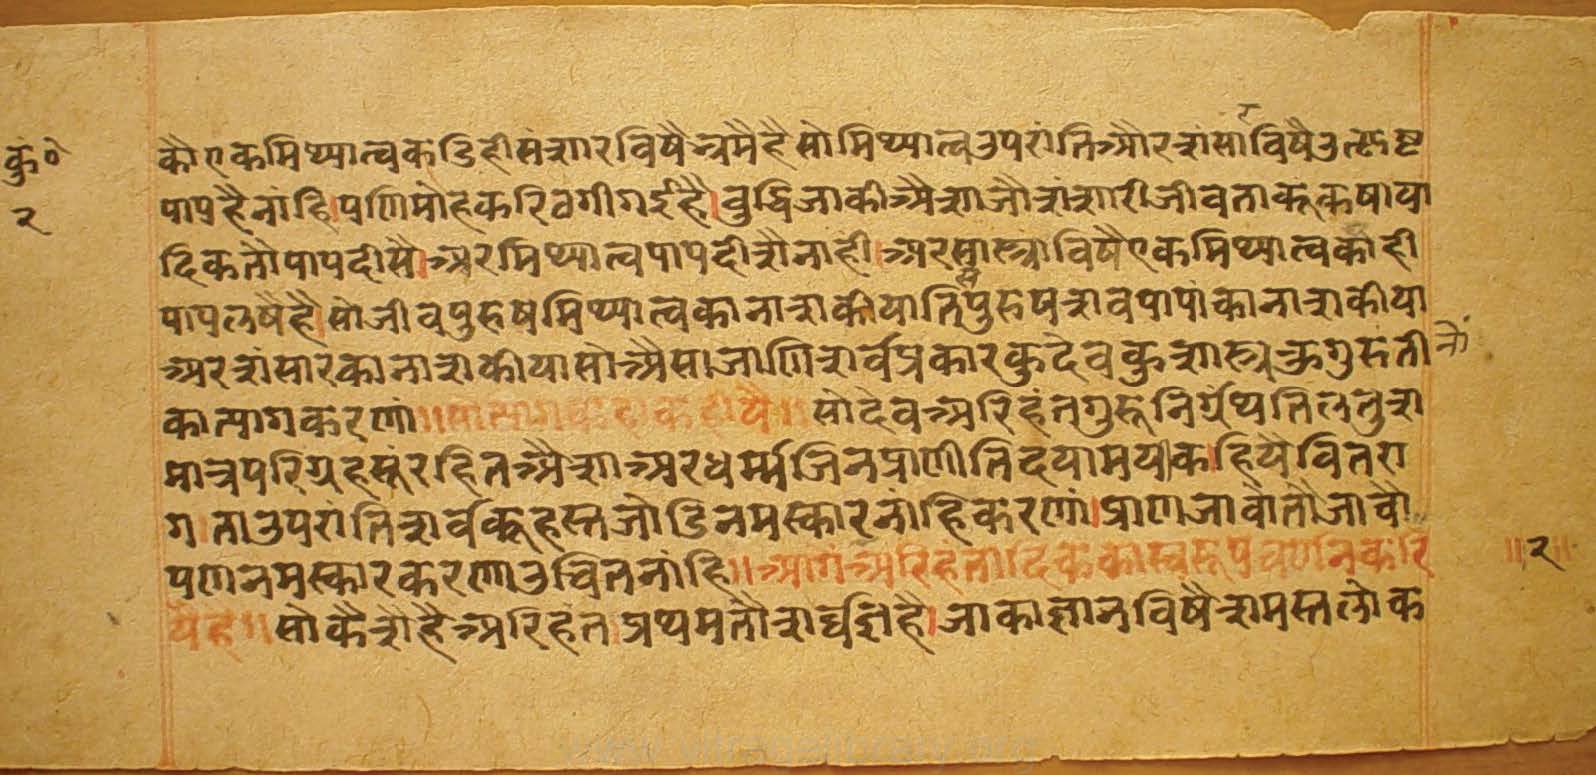 कुं०
२
कौ एक मिथ्यात्व कडिही संसार विषै भ्रमै है सो मिथ्यात्व उपरांति और संसार विषै उत्कृष्ट
पाप है नांहि। पणि मोह करि ठगी गई है। बुद्धि जाकी असा जौ संसारी जीव ताकूं कषाया
दिक तौ पाप दीसै। अर मिथ्यात्व पाप दीसै नाही। अर सास्त्रा विषै एक मिथ्यात्व को ही
पाप लषै है। सो जी व पुरुष मिथ्यात्व का नास कीया ति पुरुष सर्व पापां का नास कीया
अर संसार का नास कीया सो असा जाणि सर्व प्रकार कुदेव कुसास्त्र कुगुरु ती नां
का त्याग करणां॥ सो त्याग कहा कहीयै॥ सो देव अरिहंत गुरू निर्ग्रंथ तिल तुस
मात्र परिग्रह सूं रहित असा अर धर्म्म जिन प्रणीति दयामयी कहिये वितरा
ग। ता उपरांति सर्व कू हस्त जोडि नमस्कार नांहि करणां। प्राण जावो तौ जावो
पण नमस्कार करणा उचित नांहि॥ आगै अरिहंतादिक का स्वरूप वर्णन करि
॥२॥
ये है॥ सो कैसे है अरिहंत। प्रथम तौ सर्वज्ञि है। जाका ज्ञान विषै समस्त लोक